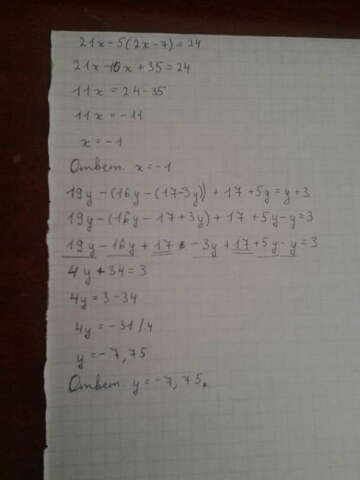 21x-5(2x-7)=24
21x-10x+35=24
11x=24-35
11x=-11
x=-1
Ответ. x=-1
19y-(16y-(17-3y))+17+5y=y+3
19y-(16y-17+3y)+17+5y-y=3
19y-16y+17-3y+17+5y-y=3
4y+34=3
4y=3-34
4y=-31/4
y=-7,75
Ответ. y=-7,75.